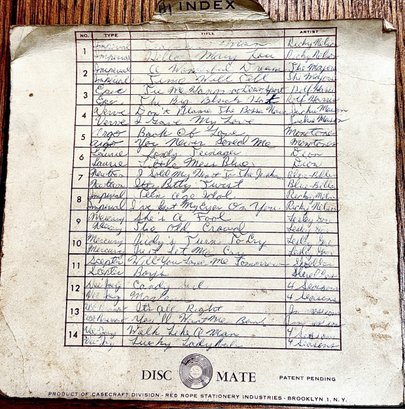 INDEX
NO. TYPE TITLE ARTIST
1 Imperial Man Ricky Nelson
Imperial Hello Mary Lou Ricky Nelson
2 Imperial A Wonderful Dream The Majors
Imperial Time Will Tell The Majors
3 Epic Tie Me Kangaroo Down Sport Rolf Harris
Epic The Big Black Hat Rolf Harris
4 Verve Don't Blame The Bossa Nova
Verve I Gave My Love
5 Argo Book Of Love Monotones
Argo You Never Loved Me Monotones
6 Laurie Lonely Teenager Dion
Laurie Little Miss Blue Dion
7 I Sold My Heart To The Junkman Blue Belles
Itty Bitty Twist Blue Belles
8 Imperial Teen Age Idol Ricky Nelson
Imperial I've Got My Eyes On You Ricky Nelson
9 Mercury She's A Fool Lesley Gore
Mercury The Old Crowd Lesley Gore
10 Mercury Judy's Turn To Cry Lesley Gore
Mercury Just Let Me Cry Lesley Gore
11 Scepter Will You Love Me Tomorrow
Scepter Boys
12 Vee Jay Candy Girl 4 Seasons
Vee Jay 4 Seasons
13 It's All Right
You'll Want Me Back
14 Vee Jay Walk Like A Man 4 Seasons
Vee Jay Lucky Ladybug 4 Seasons
DISC MATE PATENT PENDING
PRODUCT OF CASECRAFT DIVISION - RED ROPE STATIONERY INDUSTRIES - BROOKLYN 1, N. Y.